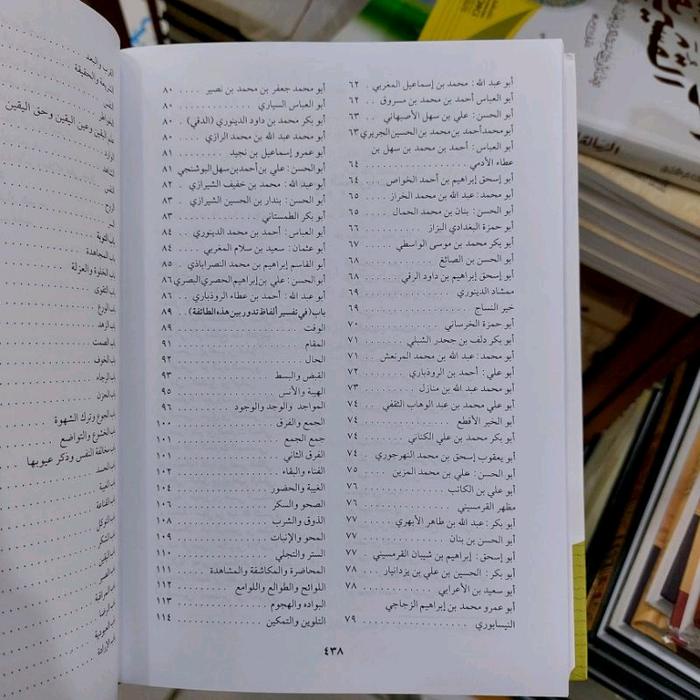 أبو عبد الله : محمد بن إسماعيل المغربي . ٦٢
أبو العباس أحمد بن محمد بن مسروق . ٦٢
أبو الحسن : علي بن سهل الأصبهاني . ٦٣
أبو محمد أحمد بن محمد بن الحسين الجريري ٦٣
أبو العباس : أحمد بن محمد بن سهل بن
عطاء الأدمي ........ ٦٤
أبو إسحق إبراهيم بن أحمد الخواص . ٦٤
أبو محمد : عبد الله بن محمد الخراز . ٦٥
أبو الحسن : بنان بن محمد الحمال . ٦٥
أبو حمزة البغدادي البزاز ........ ٦٦
أبو بكر محمد بن موسى الواسطي .. ٦٧
أبو الحسن بن الصائغ ........ ٦٨
أبو إسحق إبراهيم بن داود الرقي .. ٦٨
ممشاد الدينوري ........ ٦٩
خير النساج ........ ٦٩
أبو حمزة الخرساني ........ ٧٠
أبو بكر دلف بن جحدر الشبلي .... ٧١
أبو محمد : عبد الله بن محمد المرتعش . ٧١
أبو علي : أحمد بن الروذباري .... ٧٢
أبو محمد عبد الله بن منازل ...... ٧٣
أبو علي محمد بن عبد الوهاب الثقفي . ٧٤
أبو الخير الأقطع ........ ٧٤
أبو بكر محمد بن علي الكتاني .... ٧٤
أبو يعقوب إسحق بن محمد النهرجوري ٧٤
أبو الحسن : علي بن محمد المزين . ٧٥
أبو علي بن الكاتب ........ ٧٦
مظهر القرمسيني ........ ٧٦
أبو بكر : عبد الله بن طاهر الأبهري . ٧٧
أبو الحسن بن بنان ........ ٧٧
أبو إسحق : إبراهيم بن شيبان القرمسيني ٧٧
أبو بكر : الحسين بن علي بن يزدانيار . ٧٨
أبو سعيد بن الأعرابي ........ ٧٨
أبو عمرو محمد بن إبراهيم الزجاجي
النيسابوري ........ ٧٩
أبو محمد جعفر بن محمد بن نصير .... ٨٠
أبو العباس السياري ........ ٨٠
أبو بكر محمد بن داود الدينوري (الدقي) . ٨٠
أبو محمد عبد الله بن محمد الرازي ... ٨٠
أبو عمرو إسماعيل بن نجيد ........ ٨١
أبو الحسن : علي بن أحمد بن سهل البوشنجي ٨١
أبو عبد الله : محمد بن خفيف الشيرازي . ٨٢
أبو الحسن : بندار بن الحسين الشيرازي . ٨٣
أبو بكر الطمستاني ........ ٨٣
أبو العباس : أحمد بن محمد الدينوري . ٨٤
أبو عثمان : سعيد بن سلام المغربي .. ٨٤
أبو القاسم إبراهيم بن محمد النصراباذي . ٨٥
أبو الحسن : علي بن إبراهيم الحصري البصري ٨٦
أبو عبد الله : أحمد بن عطاء الروذباري . ٨٦
باب (في تفسير ألفاظ تدور بين هذه الطائفة) . ٨٩
الوقت ........ ٨٩
المقام ........ ٩١
الحال ........ ٩٢
القبض والبسط ........ ٩٣
الهيبة والأنس ........ ٩٥
المواجد والوجد والوجود ........ ٩٦
الجمع والفرق ........ ١٠٠
جمع الجمع ........ ١٠١
الفرق الثاني ........ ١٠١
الفناء والبقاء ........ ١٠٢
الغيبة والحضور ........ ١٠٤
الصحو والسكر ........ ١٠٦
الذوق والشرب ........ ١٠٨
المحو والإثبات ........ ١٠٩
الستر والتجلي ........ ١١٠
المحاضرة والمكاشفة والمشاهدة ........ ١١١
اللوائح والطوالع واللوامع ........ ١١٢
البواده والهجوم ........ ١١٣
التلوين والتمكين ........ ١١٤
٤٣٨
القرب والبعد
الشريعة والحقيقة
النفس
الخواطر
علم اليقين وعين اليقين وحق اليقين
الوارد
الشاهد
النفس
الروح
باب التوبة
باب المجاهدة
باب الخلوة والعزلة
باب التقوى
باب الورع
باب الزهد
باب الصمت
باب الخوف
باب الرجاء
باب الحزن
باب الجوع وترك الشهوة
باب الخشوع والتواضع
باب مخالفة النفس وذكر عيوبها
باب الحسد
باب الغيبة
باب القناعة
باب التوكل
باب الشكر
باب اليقين
باب الصبر
باب المراقبة
باب الرضا
باب العبودية
باب الإرادة